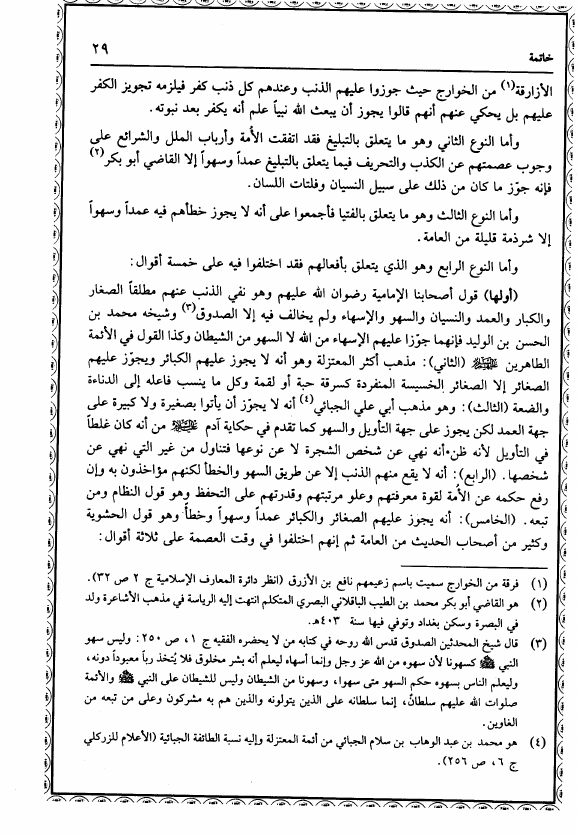 خاتمة ٢٩
الأزارقة(١) من الخوارج حيث جوزوا عليهم الذنب وعندهم كل ذنب كفر فيلزمه تجويز الكفر
عليهم بل يحكي عنهم أنهم قالوا يجوز أن يبعث الله نبياً علم أنه يكفر بعد نبوته .
وأما النوع الثاني وهو ما يتعلق بالتبليغ فقد اتفقت الأمة وأرباب الملل والشرائع على
وجوب عصمتهم عن الكذب والتحريف فيما يتعلق بالتبليغ عمداً وسهواً إلا القاضي أبو بكر(٢)
فإنه جوّز ما كان من ذلك على سبيل النسيان وفلتات اللسان .
وأما النوع الثالث وهو ما يتعلق بالفتيا فأجمعوا على أنه لا يجوز خطأهم فيه عمداً وسهواً
إلا شرذمة قليلة من العامة .
وأما النوع الرابع وهو الذي يتعلق بأفعالهم فقد اختلفوا فيه على خمسة أقوال :
(أولها) قول أصحابنا الإمامية رضوان الله عليهم وهو نفي الذنب عنهم مطلقاً الصغار
والكبار والعمد والنسيان والسهو والإسهاء ولم يخالف فيه إلا الصدوق(٣) وشيخه محمد بن
الحسن بن الوليد فإنهما جوّزا عليهم الإسهاء من الله لا السهو من الشيطان وكذا القول في الأئمة
الطاهرين (الثاني) : مذهب أكثر المعتزلة وهو أنه لا يجوز عليهم الكبائر ويجوّز عليهم
الصغائر إلا الصغائر الخسيسة المنفردة كسرقة حبة أو لقمة وكل ما ينسب فاعله إلى الدناءة
والضعة (الثالث) : وهو مذهب أبي علي الجبائي(٤) أنه لا يجوّز أن يأتوا بصغيرة ولا كبيرة على
جهة العمد لكن يجوز على جهة التأويل والسهو كما تقدم في حكاية آدم من أنه كان غلطاً
في التأويل لأنه ظن أنه نهي عن شخص الشجرة لا عن نوعها فتناول من غير التي نهي عن
شخصها . (الرابع) : أنه لا يقع منهم الذنب إلا عن طريق السهو والخطأ لكنهم مؤاخذون به وإن
رفع حكمه عن الأمة لقوة معرفتهم وعلو مرتبتهم وقدرتهم على التحفظ وهو قول النظام ومن
تبعه . (الخامس) : أنه يجوز عليهم الصغائر والكبائر عمداً وسهواً وخطأ وهو قول الحشوية
وكثير من أصحاب الحديث من العامة ثم إنهم اختلفوا في وقت العصمة على ثلاثة أقوال :
(١) فرقة من الخوارج سميت باسم زعيمهم نافع بن الأزرق (انظر دائرة المعارف الإسلامية ج ٢ ص ٣٢).
(٢) هو القاضي أبو بكر محمد بن الطيب الباقلاني البصري المتكلم انتهت إليه الرياسة في مذهب الأشاعرة ولد
في البصرة وسكن بغداد وتوفي فيها سنة ٤٠٣هـ.
(٣) قال شيخ المحدثين الصدوق قدس الله روحه في كتابه من لا يحضره الفقيه ج ١، ص ٢٥٠: وليس سهو
النبي ﷺ كسهونا لأن سهوه من الله عز وجل وإنما أسهاه ليعلم أنه بشر مخلوق فلا يُتخذ رباً معبوداً دونه،
وليعلم الناس بسهوه حكم السهو متى سهوا، وسهونا من الشيطان وليس للشيطان على النبي ﷺ والأئمة
صلوات الله عليهم سلطانٌ، إنما سلطانه على الذين يتولونه والذين هم به مشركون وعلى من تبعه من
الغاوين.
(٤) هو محمد بن عبد الوهاب بن سلام الجبائي من أئمة المعتزلة وإليه نسبة الطائفة الجبائية (الأعلام للزركلي
ج ٦، ص ٢٥٦).